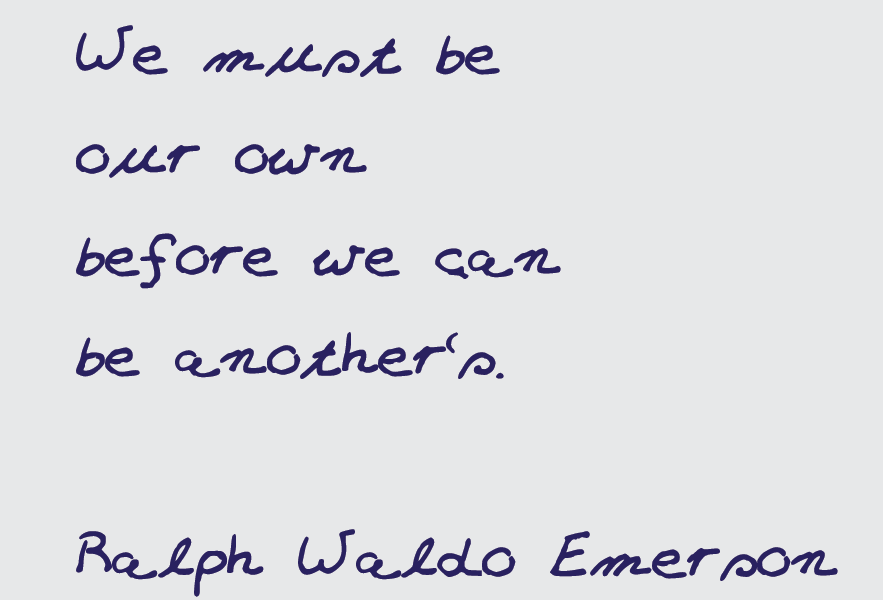 We must be
our own
before we can
be another's.
Ralph Waldo Emerson